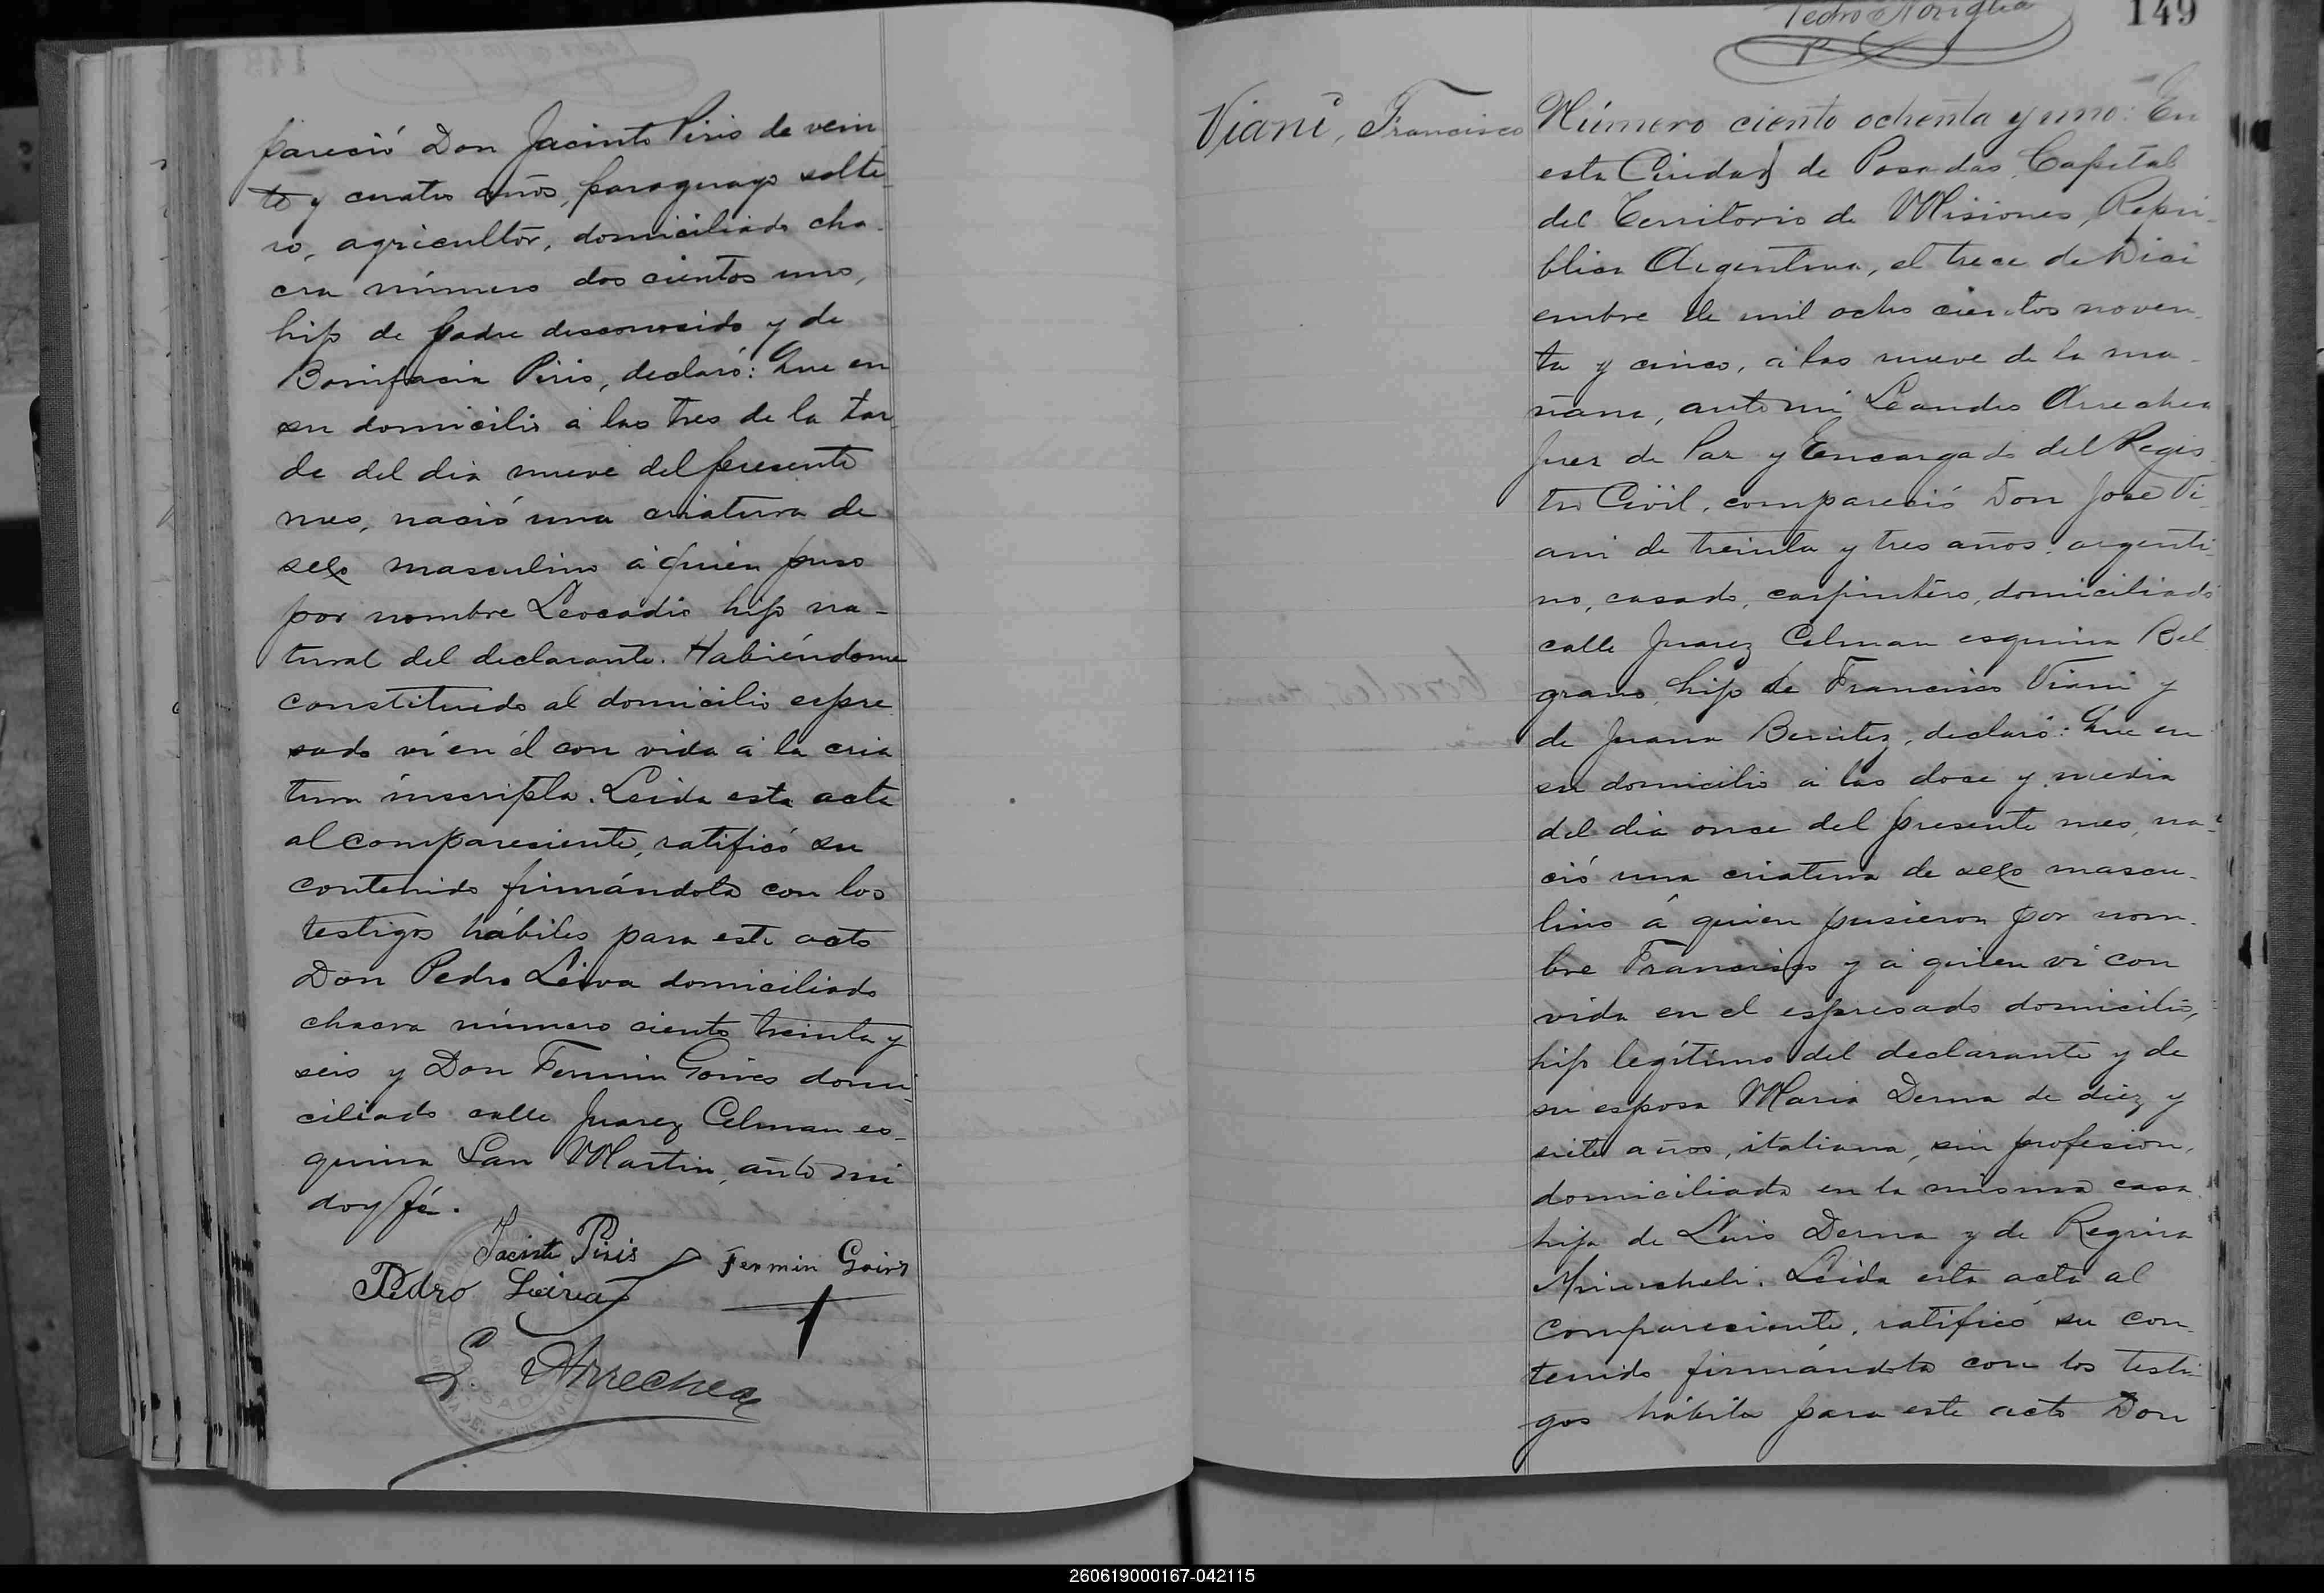 pareció Don Jacinto Piris de vein
te y cuatro años, paraguayo solte
ro, agricultor, domiciliado cha
cra número dos cientos uno,
hijo de padre desconocido y de
Bonifacia Piris, declaró: Que en
su domicilio á las tres de la tar
de del dia nueve del presente
mes, nació una criatura de
sexo masculino á quien puso
por nombre Leocadio hijo na-
tural del declarante. Habiéndome
constituido al domicilio espre
sado ví en él con vida á la cria
tura inscripta. Leida esta acta
al compareciente, ratificó su
contenido firmándola con los
testigos hábiles para este acto
Don Pedro Leiva domiciliado
chacra número ciento treinta y
seis y Don Fermin Goires domi
ciliado calle Juarez Celman es-
quina San Martin, ante mi
doy fé.
Jacinto Piris
Fermin Goires
Pedro Leiva
L. Arrechea
149
Pedro
Viani, Francisco
Número ciento ochenta y uno: En
esta Ciudad de Posadas, Capital
del Territorio de Misiones, Repú-
blica Argentina, el trece de Dici
embre de mil ocho cientos noven-
ta y cinco, á las nueve de la ma-
ñana, ante mi Leandro Arrechea
Juez de Paz y Encargado del Regis
tro Civil, compareció Don José Vi-
ani de treinta y tres años, argenti-
no, casado, carpintero, domiciliado
calle Juarez Celman esquina Bel
grano, hijo de Francisco Viani y
de Juana Benitez, declaró: Que en
su domicilio á las doce y media
del dia once del presente mes, na-
ció una criatura de sexo mascu-
lino á quien pusieron por nom-
bre Francisco y á quien ví con
vida en el espresado domicilio,
hijo legítimo del declarante y de
su esposa Maria Derna de diez y
siete años, italiana, sin profesion,
domiciliada en la misma casa
hija de Luis Derna y de Regina
Leida esta acta al
compareciente, ratificó su con-
tenido firmándola con los testi-
gos hábiles para este acto Don
260619000167-042115